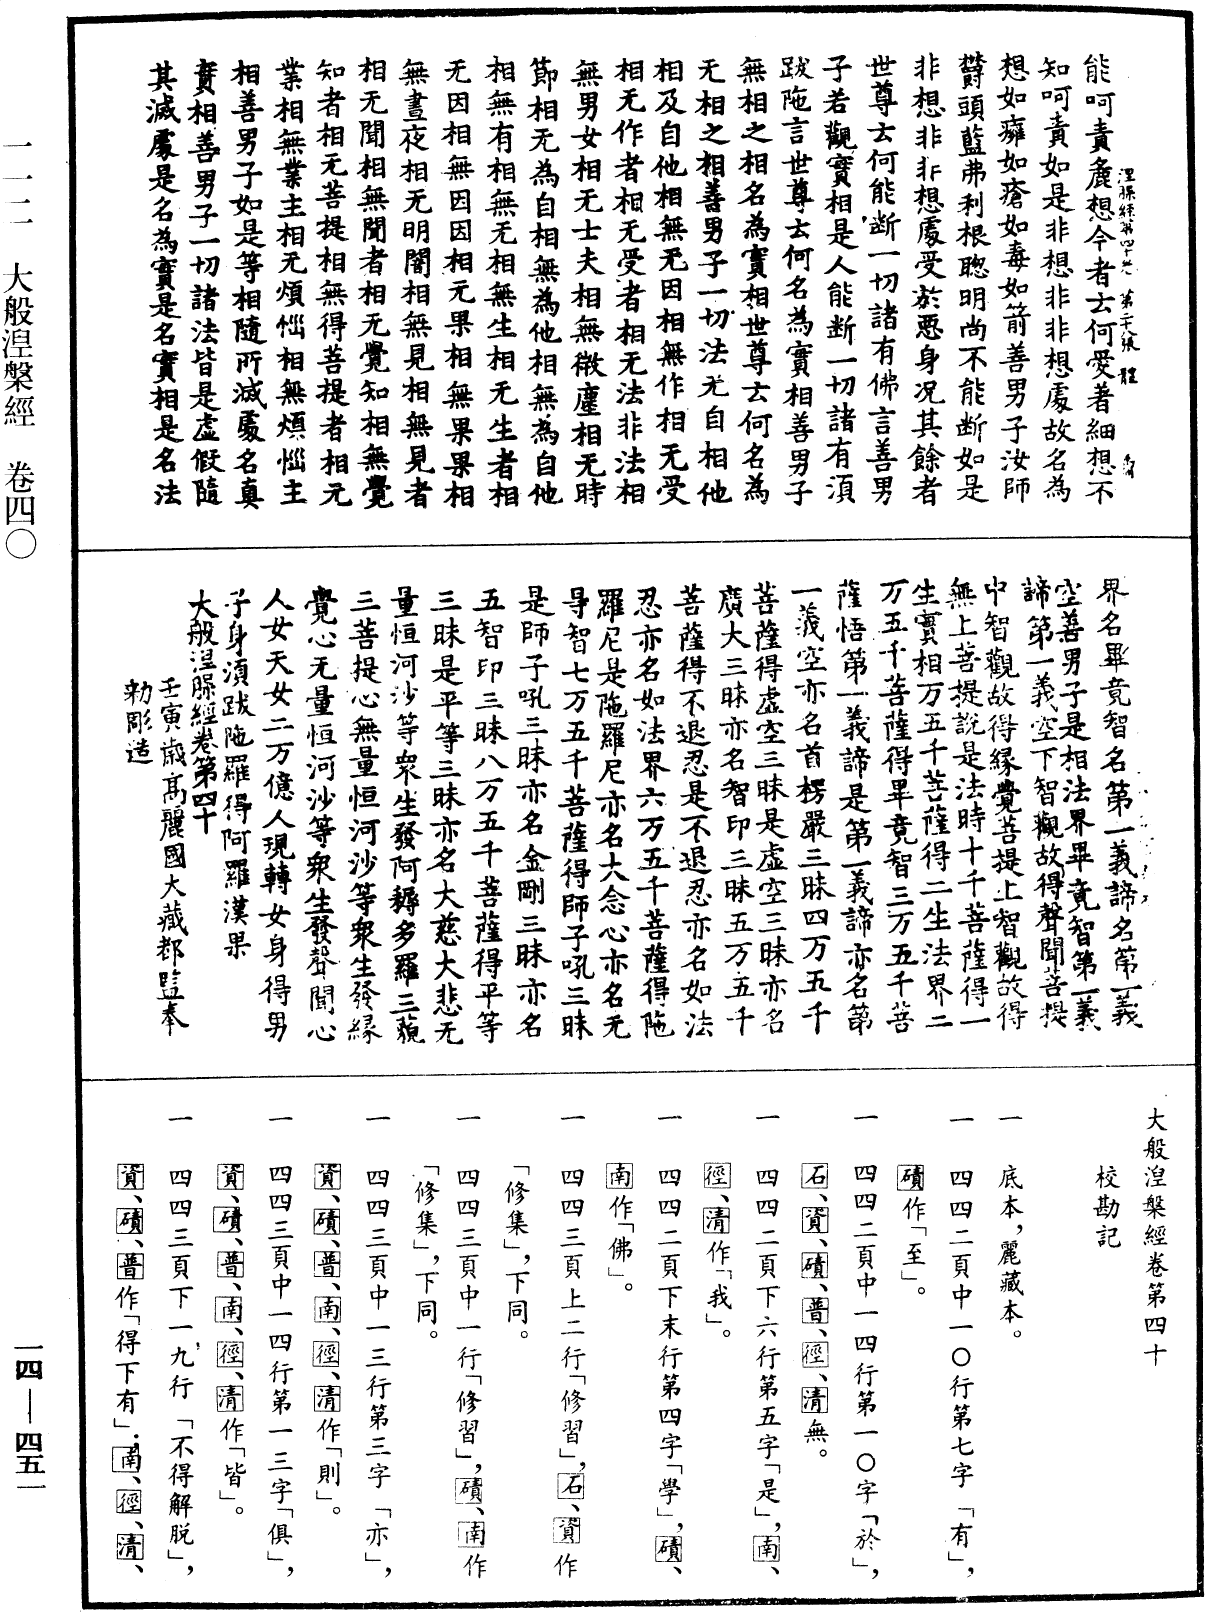 一一二　大般涅槃經　卷四〇
能呵責麁想今者云何愛著細想不
涅縣經第四十卷　第二十八張　體
知呵責如是非想非非想處故名為
想如癰如瘡如毒如箭善男子汝師
欝頭藍弗利根聦明尚不能断如是
非想非非想處受於惡身况其餘者
世尊云何能断一切諸有佛言善男
子若觀實相是人能断一切諸有須
跋陁言世尊云何名為實相善男子
無相之相名為實相世尊云何名為
无相之相善男子一切法无自相他
相及自他相無无因相無作相无受
相无作者相无受者相无法非法相
無男女相无士夫相無微塵相无時
節相无為自相無為他相無為自他
相無有相無无相無生相无生者相
无因相無因因相无果相無果果相
無晝夜相无明闇相無見相無見者
相无聞相無聞者相无覺知相無覺
知者相无菩提相無得菩提者相无
業相無業主相无煩惱相無煩惱主
相善男子如是等相隨所滅處名真
實相善男子一切諸法皆是虛假隨
其滅處是名為實是名實相是名法
界名畢竟智名第一義諦名第一義
空善男子是相法界畢竟智第一義
諦第一義空下智觀故得聲聞菩提
中智觀故得緣覺菩提上智觀故得
無上菩提說是法時十千菩薩得一
生實相万五千菩薩得二生法界二
万五千菩薩得畢竟智三万五千菩
薩悟第一義諦是第一義諦亦名第
一義空亦名首楞嚴三昧四万五千
菩薩得虛空三昧是虛空三昧亦名
廣大三昧亦名智印三昧五万五千
菩薩得不退忍是不退忍亦名如法
忍亦名如法界六万五千菩薩得陁
羅尼是陁羅尼亦名大念心亦名无
㝵智七万五千菩薩得師子吼三昧
是師子吼三昧亦名金剛三昧亦名
五智印三昧八万五千菩薩得平等
三昧是平等三昧亦名大慈大悲无
量恒河沙等衆生發阿耨多羅三藐
三菩提心無量恒河沙等衆生發緣
覺心无量恒河沙等衆生發聲聞心
人女天女二万億人現轉女身得男
子身須跋陁羅得阿羅漢果
大般涅槃經卷第四十
壬寅歲高麗國大藏都監奉
勑彫造
大般涅槃經卷第四十
校勘記
一　底本，麗藏本。
一　四四二頁中一〇行第七字「有」，
磧作「至」。
一　四四二頁中一四行第一〇字「於」，
石、資、磧、普、徑、清無。
一　四四二頁下六行第五字「是」，南、
徑、清作「我」。
一　四四二頁下末行第四字「學」，磧、
南作「佛」。
一　四四三頁上二行「修習」，石、資作
「修集」，下同。
一　四四三頁中一行「修習」，磧、南作
「修集」，下同。
一　四四三頁中一三行第三字「亦」，
資、磧、普、南、徑、清作「則」。
一　四四三頁中一四行第一三字「俱」，
資、磧、普、南、徑、清作「皆」。
一　四四三頁下一九行「不得解脱」，
資、磧、普作「得下有」；南、徑、清、
一四—四五一